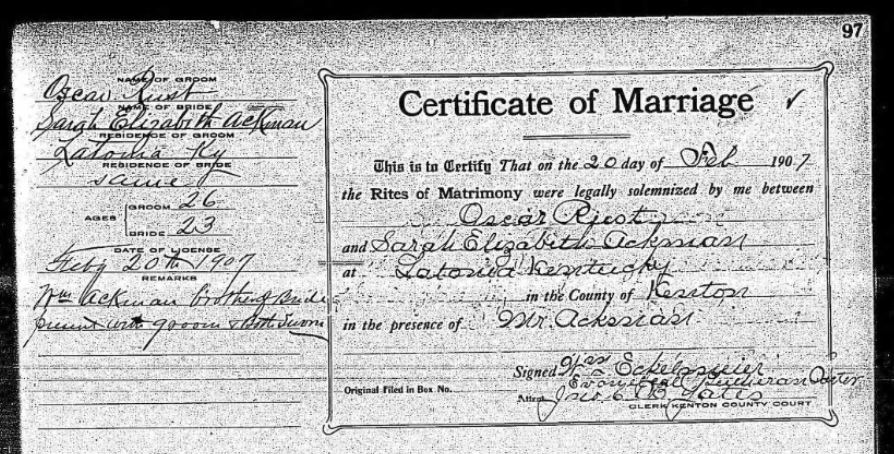 97
NAME OF GROOM
Oscar Rust
NAME OF BRIDE
Sarah Elizabeth Ackman
RESIDENCE OF GROOM
Latonia Ky
RESIDENCE OF BRIDE
same
AGES
GROOM 26
BRIDE 23
DATE OF LICENSE
Feby 20th 1907
REMARKS
Wm Ackman brother of Bride
present with groom & Both Sworn
Certificate of Marriage ✓
This is to Certify That on the 20 day of Feb 1907
the Rites of Matrimony were legally solemnized by me between
Oscar Rust
and Sarah Elizabeth Ackman
at Latonia Kentucky
in the County of Kenton
in the presence of Mr. Ackman
Signed Wm Eckelmeier
Evangelical Lutheran Pastor
Original Filed in Box No.
Attest Jno. C. B. Yates
CLERK KENTON COUNTY COURT